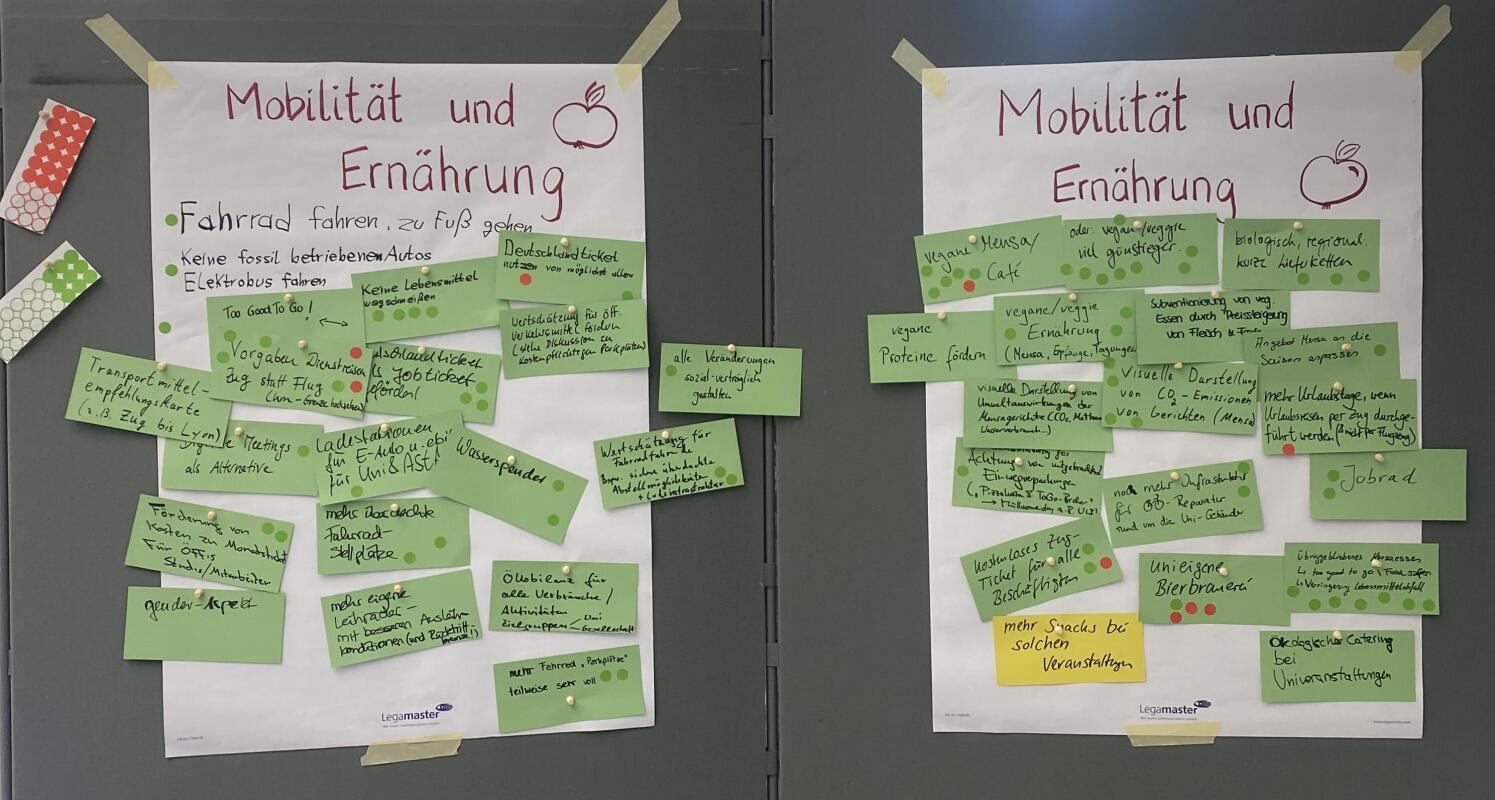 Mobilität und
Ernährung
Fahrrad fahren, zu Fuß gehen
Keine fossil betriebenen Autos
Elektrobus fahren
Deutschlandticket
nutzen von möglichst allen
Keine Lebensmittel
wegschmeißen
Too Good To Go!
Wertschätzung für öff.
Verkehrsmittel fördern
(siehe Diskussion zu
kostenpflichtigen Parkplätzen)
Vorgaben Dienstreisen
Zug statt Flug
(km-Grenze
Jobticket
alle Veränderungen
sozial-verträglich
gestalten
Transportmittel-
empfehlungskarte
(z.B. Zug bis Lyon)
Meetings
als Alternative
Ladestationen
für E-Auto u.
für Uni & AStA
Wasserspender
Wertschätzung für
Fahrradfahrende
Bspw. sichere überdachte
Abstellmöglichkeiten
+ Ladeinfrastruktur
Förderung von
Kosten zu Monatsticket
Für Öffis
Studis/Mitarbeiter
mehr überdachte
Fahrrad-
stellplätze
gender-Aspekt
mehr eigene
Leihräder
mit besseren Ausleih-
konditionen (und Rücktritt-
bremse!)
Ökobilanz für
alle Verbräuche/
Aktivitäten
Zielgruppen Uni
Gesellschaft
mehr Fahrrad „Parkplätze"
teilweise sehr voll
Legamaster
Mobilität und
Ernährung
vegane Mensa/
Café
oder vegan/veggie
viel günstiger.
biologisch, regional.
kurze Lieferketten
vegane
Proteine fördern
vegane/veggie
Ernährung
(Mensa, Empfänge, Tagungen
Subventionierung von veg.
Essen durch Preissteigerung
von Fleisch &
Angebot Mensa an die
Saison anpassen
visuelle Darstellung von
Umweltauswirkungen der
Mensagerichte (CO2, Methan
Wasserverbrauch...)
Visuelle Darstellung
von CO2-Emissionen
von Gerichten (Mensa)
mehr Urlaubstage, wenn
Urlaubsreisen per Zug durchge-
führt werden (nicht per Flugzeug)
Achtung von mitgebrachten
Einwegverpackungen
(„Pizzakarton & ToGo-Becher"
noch mehr Infrastruktur
für Reparatur
rund um die Uni-Gebäude
Jobrad
kostenloses Zug-
Ticket für alle
Beschäftigten
Unieigene
Bierbrauerei
Übriggebliebenes Mensaessen
↳ too good to go
↳ Verringerung Lebensmittelabfall
mehr Snacks bei
solchen
Veranstaltungen
Ökologisches Catering
bei
Univeranstaltungen
Legamaster
www.legamaster.com